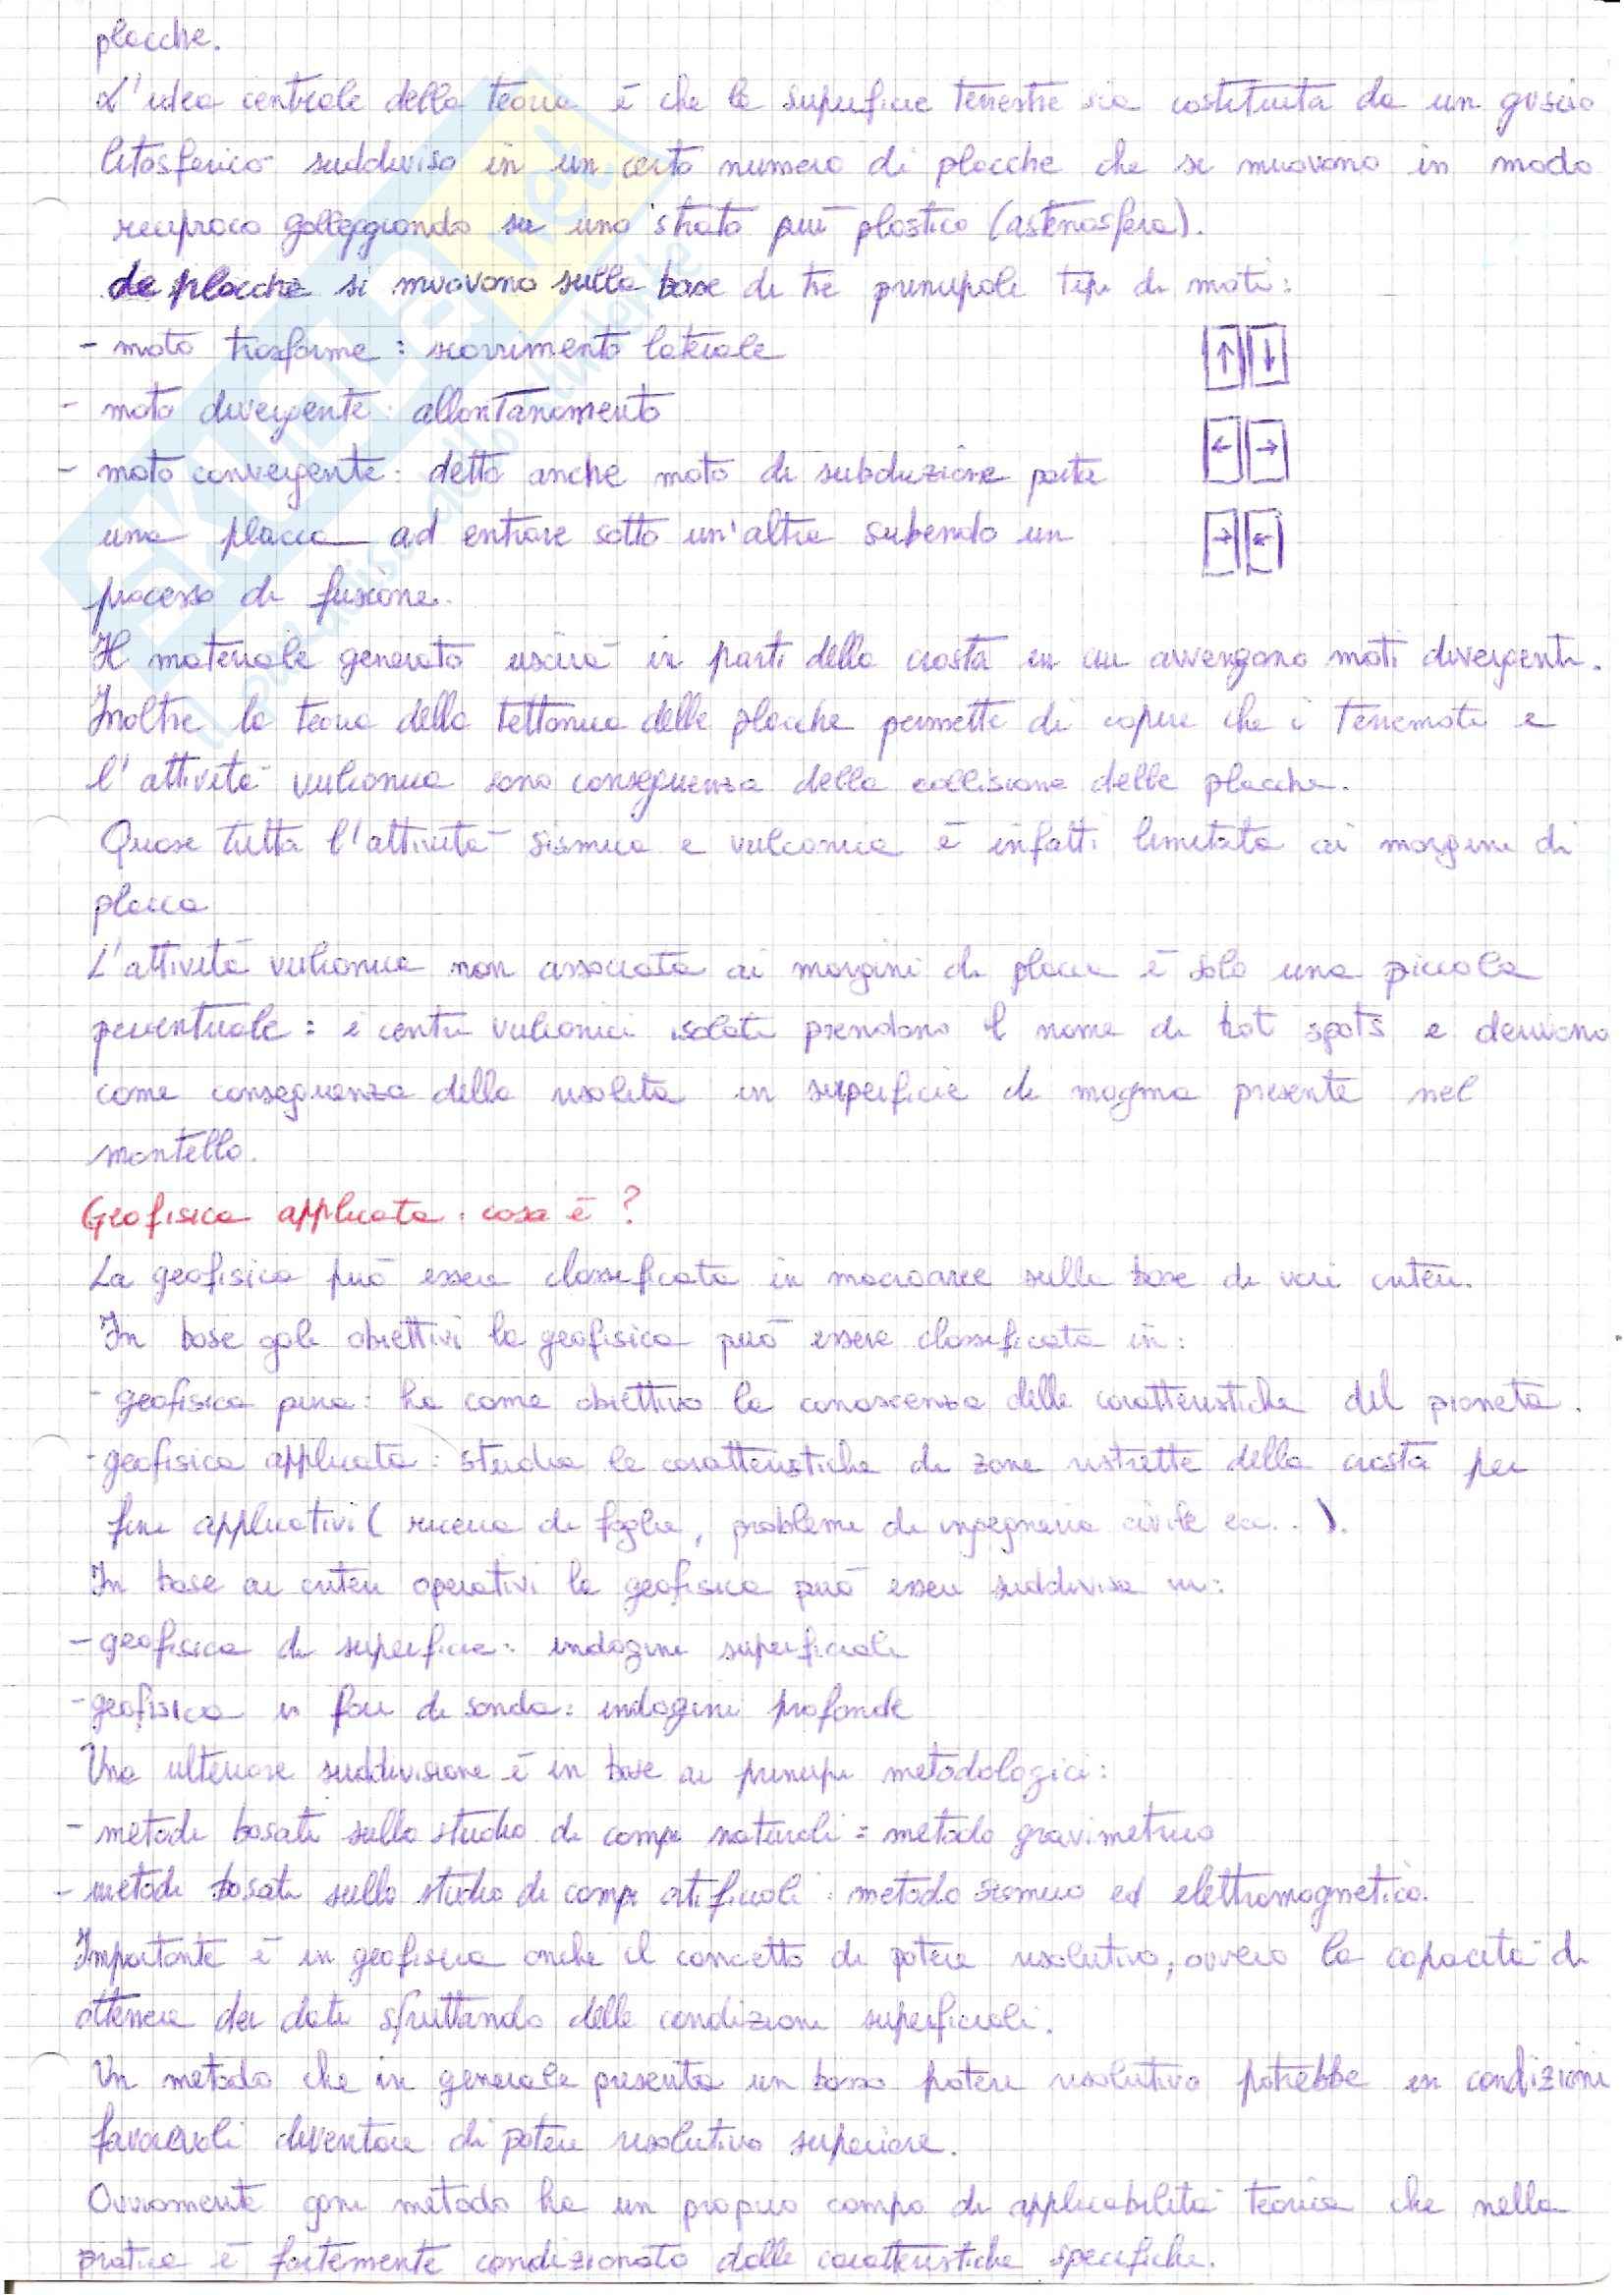 placche.
L'idea centrale della teoria è che la superficie terrestre sia costituita da un guscio
litosferico suddiviso in un certo numero di placche che si muovono in modo
reciproco galleggiando su uno strato più plastico (astenosfera).
Le placche si muovono sulla base di tre principali tipi di moti:
- moto trasforme: scorrimento laterale
- moto divergente: allontanamento
- moto convergente: detto anche moto di subduzione porta
una placca ad entrare sotto un'altra subendo un
processo di fusione.
Il materiale generato uscirà in parti della crosta in cui avvengono moti divergenti.
Inoltre la teoria della tettonica delle placche permette di capire che i terremoti e
l'attività vulcanica sono conseguenza della collisione delle placche.
Quase tutta l'attività sismica e vulcanica è infatti limitata ai margini di
placca
L'attività vulcanica non associata ai margini di placca è solo una piccola
percentuale: i centri vulcanici isolati prendono il nome di hot spots e derivano
come conseguenza della risalita in superficie di magma presente nel
mantello.
Geofisica applicata: cosa è?
La geofisica può essere classificata in macroaree sulla base di vari criteri.
In base gali obiettivi la geofisica può essere classificata in:
- geofisica pura: ha come obiettivo la conoscenza delle caratteristiche del pianeta.
- geofisica applicata: studia le caratteristiche di zone ristrette della crosta per
fini applicativi (ricerca di faglie, problemi di ingegneria civile ecc..).
In base ai criteri operativi la geofisica può essere suddivisa in:
- geofisica di superficie: indagini superficiali
- geofisica in fori di sonda: indagini profonde
Una ulteriore suddivisione è in base ai principi metodologici:
- metodi basati sullo studio di campi naturali: metodo gravimetrico
- metodi basati sullo studio di campi atificiali: metodo sismico ed elettromagnetico.
Importante è in geofisica anche il concetto di potere risolutivo, ovvero la capacità di
ottenere dei dati sfruttando delle condizioni superficiali.
Un metodo che in generale presenta un basso potere risolutivo potrebbe in condizioni
favorevoli diventare di potere risolutivo superiore.
Ovviamente ogni metodo ha un proprio campo di applicabilità teorica che nella
pratica è fortemente condizionato dalle caratteristiche specifiche.